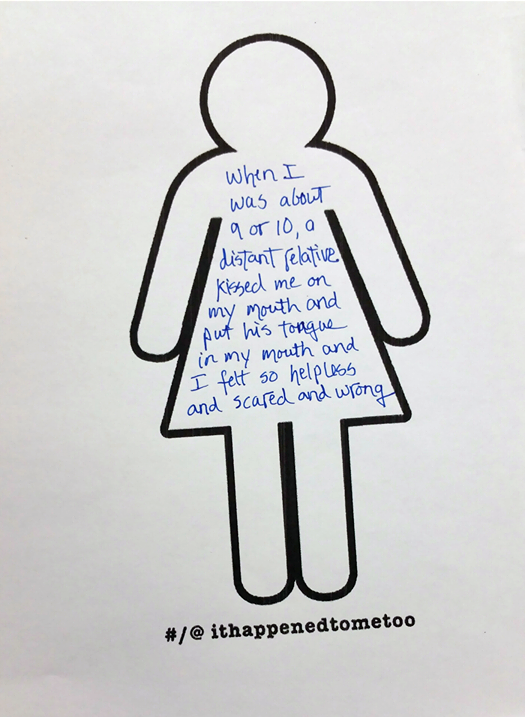 When I
was about
9 or 10, a
distant relative
kissed me on
my mouth and
put his tongue
in my mouth and
I felt so helpless
and scared and wrong
#/@ ithappenedtometoo